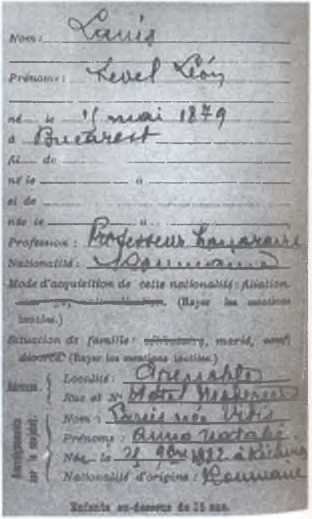 Nom: Lauis
Prénoms: Level Léon
né le 15 mai 1879
à Bucarest
fil de
né le à
et de
née le à
Profession: Professeur honoraire
Nationalité: Roumaine
Mode d'acquisition de cette nationalité: filiation
(Rayer les mentions
inutiles.)
Situation de famille: célibataire, marié, veuf
divorcé (Rayer les mentions inutiles.)
Localité: Grenoble
Rue et N° Hôtel Moderne
Nom: née
Prénoms: Anna
Née le 25 9bre à
Nationalité d'origine: Roumaine
Enfants au-dessous de 15 ans.